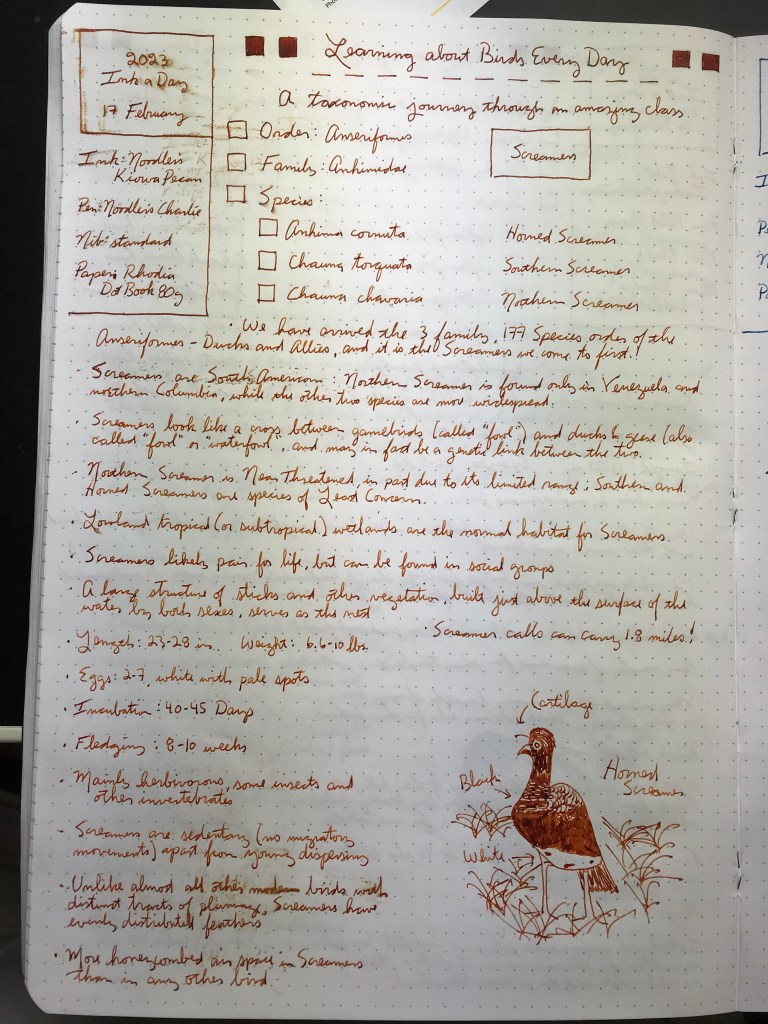 Learning about Birds Every Day
2023
Ink a Day
17 February
Ink: Noodler's
Kiowa Pecan
Pen: Noodler's Charlie
Nib: standard
Paper: Rhodia
Dot Book 80g
A taxonomic journey through an amazing class.
Order: Anseriformes
Family: Anhimidae
Screamers
Species:
Anhima cornuta Horned Screamer
Chauna torquata Southern Screamer
Chauna chavaria Northern Screamer
· We have arrived the 3 family, 177 Species, order of the
Anseriformes - Ducks and Allies, and it is the Screamers we come to first!
· Screamers are South American: Northern Screamer is found only in Venezuela and
northern Columbia, while the other two species are more widespread.
· Screamers look like a cross between gamebirds (called "fowl") and ducks & geese (also
called "fowl" or "waterfowl", and may in fact be a genetic link between the two.
· Northern Screamer is Near Threatened, in part due to its limited range; Southern and
Horned Screamers are species of Least Concern.
· Lowland tropical (or subtropical) wetlands are the normal habitat for Screamers
· Screamers likely pair for life, but can be found in social groups
· A large structure of sticks and other vegetation, built just above the surface of the
water by both sexes, serves as the nest
· Screamer calls can carry 1.8 miles!
· Length: 23-28 in. Weight: 6.6-10 lbs.
· Eggs: 2-7, white with pale spots
· Incubation: 40-45 Days
· Fledging: 8-10 weeks
· Mainly herbivorous, some insects and
other invertebrates
· Screamers are sedentary (no migratory
movements) apart from young dispersing
· Unlike almost all other modern birds with
distinct tracts of plumage, Screamers have
evenly distributed feathers
· More honeycombed air space in Screamers
than in any other bird
Cartilage
Black
White
Horned
Screamer